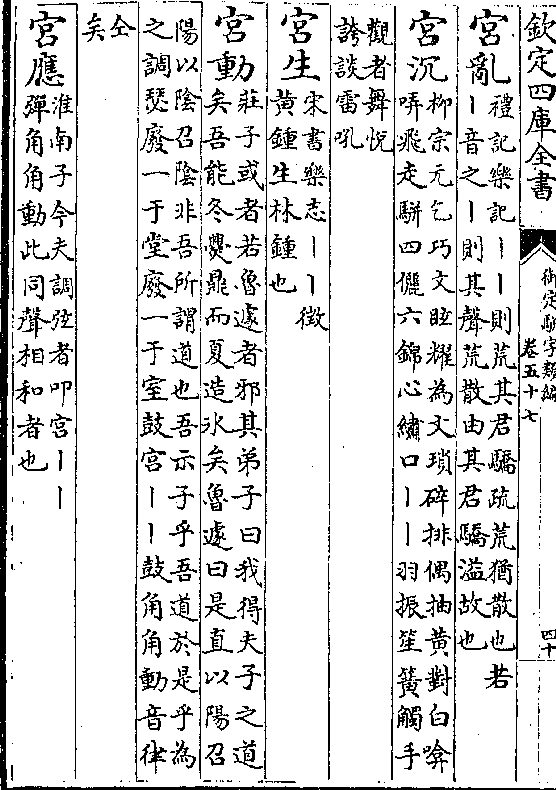 欽定四庫全書
御定駢字類編
卷五十七
四十
宮亂
禮記樂記丨丨則荒其君驕疏荒猶散也若
丨音之丨則其聲荒散由其君驕溢故也
宮沉
柳宗元乞巧文眩耀為文瑣碎排偶抽黄對白啽
哢飛走駢四儷六錦心繡口丨丨羽振笙簧觸手
觀者舞悦
誇談雷吼
宮生
宋書樂志丨丨徵
黄鍾生林鍾也
宮動
莊子或者若魯遽者邪其弟子曰我得夫子之道
矣吾能冬爨鼎而夏造氷矣魯遽曰是直以陽召
陽以陰召陰非吾所謂道也吾示子乎吾道於是乎為
之調瑟廢一于堂廢一于室鼓宮丨丨鼓角角動音律
仝
矣
宮應
淮南子今夫調弦者叩宮丨丨
彈角角動此同聲相和者也